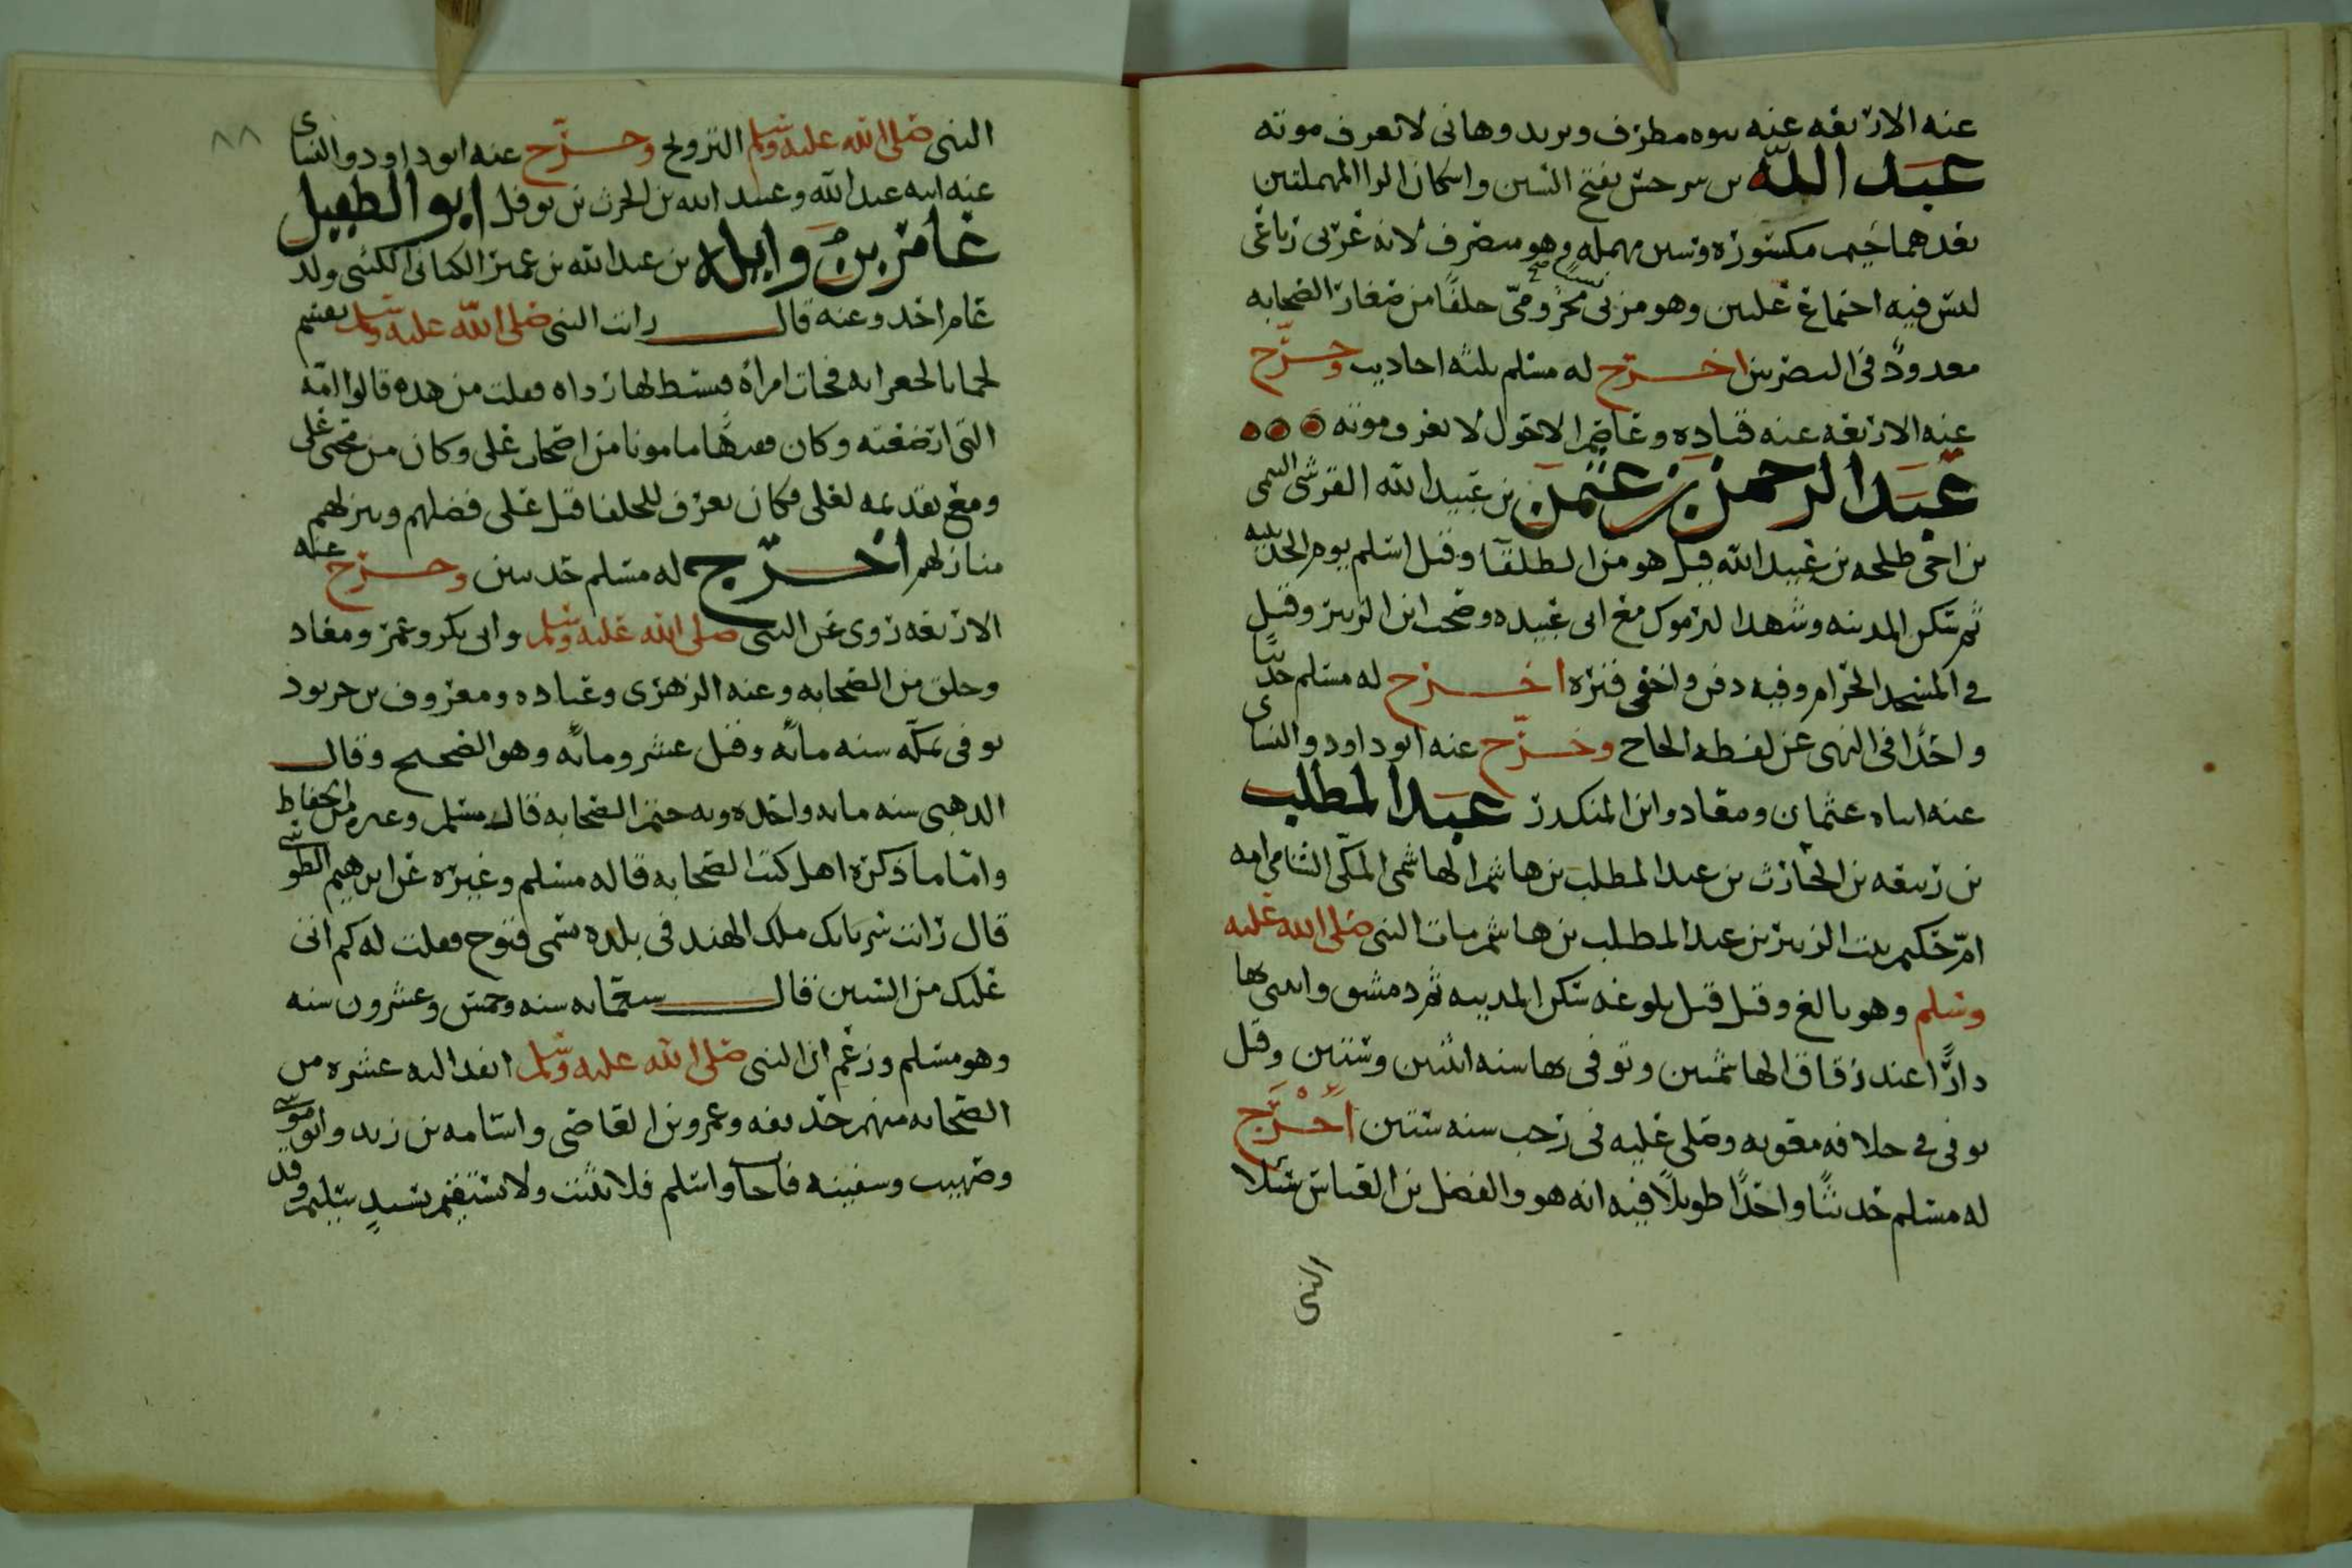 عنه الاربعه عنه بنوه مطرف ويزيد وهانى لا تعرف موته
عبد الله بن سرجس بفتح السين واسكان الرا المهملتين
بعدهما جيم مكسوره وسين مهمله وهو منصرف لانه عربى رباعى
ليس فيه اجتماع علتين وهو مزنى مخزومى حلفا من صغار الصحابه
معدود فى البصريين اخرج له مسلم ثلثه احاديث وخرج
عنه الاربعه عنه قتاده وعاصم الاحول لا تعرف موته
عبد الرحمن بن عثمن بن عبيد الله القرشى التيمى
بن اخى طلحه بن عبيد الله قيل هو من الطلقا وقيل اسلم يوم الحديبيه
ثم سكن المدينه وشهد اليرموك مع ابى عبيده وصحب ابن الزبير وقتل
فى المسجد الحرام وفيه دفن واخفى قبره اخرج له مسلم حديثا
واحدا فى النهى عن لقطه الحاج وخرج عنه ابو داود والنساى
عنه ابناه عثمان ومعاد وابن المنكدر عبد المطلب
بن ربيعه بن الحارث بن عبد المطلب بن هاشم الهاشمى المكى الشامى امه
ام حكيم بنت الزبير بن عبد المطلب بن هاشم مات النبى صلى الله عليه
وسلم وهو بالغ وقيل قبل بلوغه سكن المدينه ثم دمشق وابتنى بها
دارا عند زقاق الهاشميين وتوفى بها سنه اثنين وستين وقيل
توفى فى خلافه معويه وصلى عليه فى رجب سنه ستين اخرج
له مسلم حديثا واحدا طويلا فيه انه هو والفضل بن العباس سئلا
النبى
٨٨
النبى صلى الله عليه وسلم التزويج وخرج عنه ابو داود والنساى
عنه ابنه عبد الله وعبيد الله بن الحرث بن نوفل ابو الطفيل
عامر بن وايله بن عبد الله بن عمير الكنانى الليثى ولد
عام احد وعنه قال رايت النبى صلى الله عليه وسلم يقسم
لحما بالجعرانه فجات امراه فبسط لها رداه فقلت من هده قالوا امه
التى ارضعته وكان فقيها مامونا من اصحاب على وكان من محبى على
ومع تقديمه لعلى فكان يعرف للخلفا قبل على فضلهم وينزلهم
منازلهم اخرج له مسلم حديثين وخرج عنه
الاربعه روى عن النبى صلى الله عليه وسلم وابى بكر وعمر ومعاد
وخلق من الصحابه وعنه الزهرى وقتاده ومعروف بن خربود
توفى بمكه سنه مائه وقيل عشر ومائه وهو الصحيح وقال
الدهبى سنه مايه واحده وبه ختم الصحابه قال مسلم وغيره من الحفاظ
واما ما ذكره اهل كتب الصحابه قاله مسلم وغيره عن ابرهيم الطوسى
قال رايت سرباتك ملك الهند فى بلده تسمى قنوج فقلت له كم اتى
عليك من السنين قال سبعمايه سنه وخمس وعشرون سنه
وهو مسلم وزعم ان النبى صلى الله عليه وسلم انفد اليه عشره من
الصحابه منهم حذيفه وعمرو بن العاصى واسامه بن زيد وابو موسى
وصهيب وسفينه فاجاب واسلم فلا يثبت ولا يستقيم بسند سليم وقد